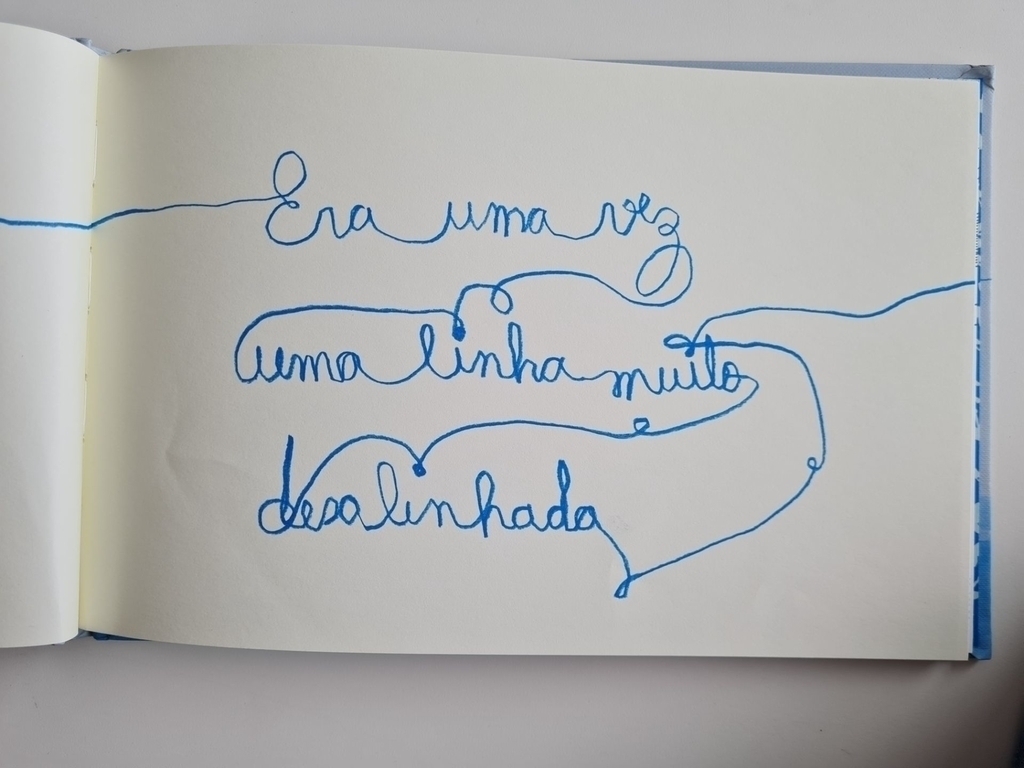 Era uma vez
uma linha muito
desalinhada